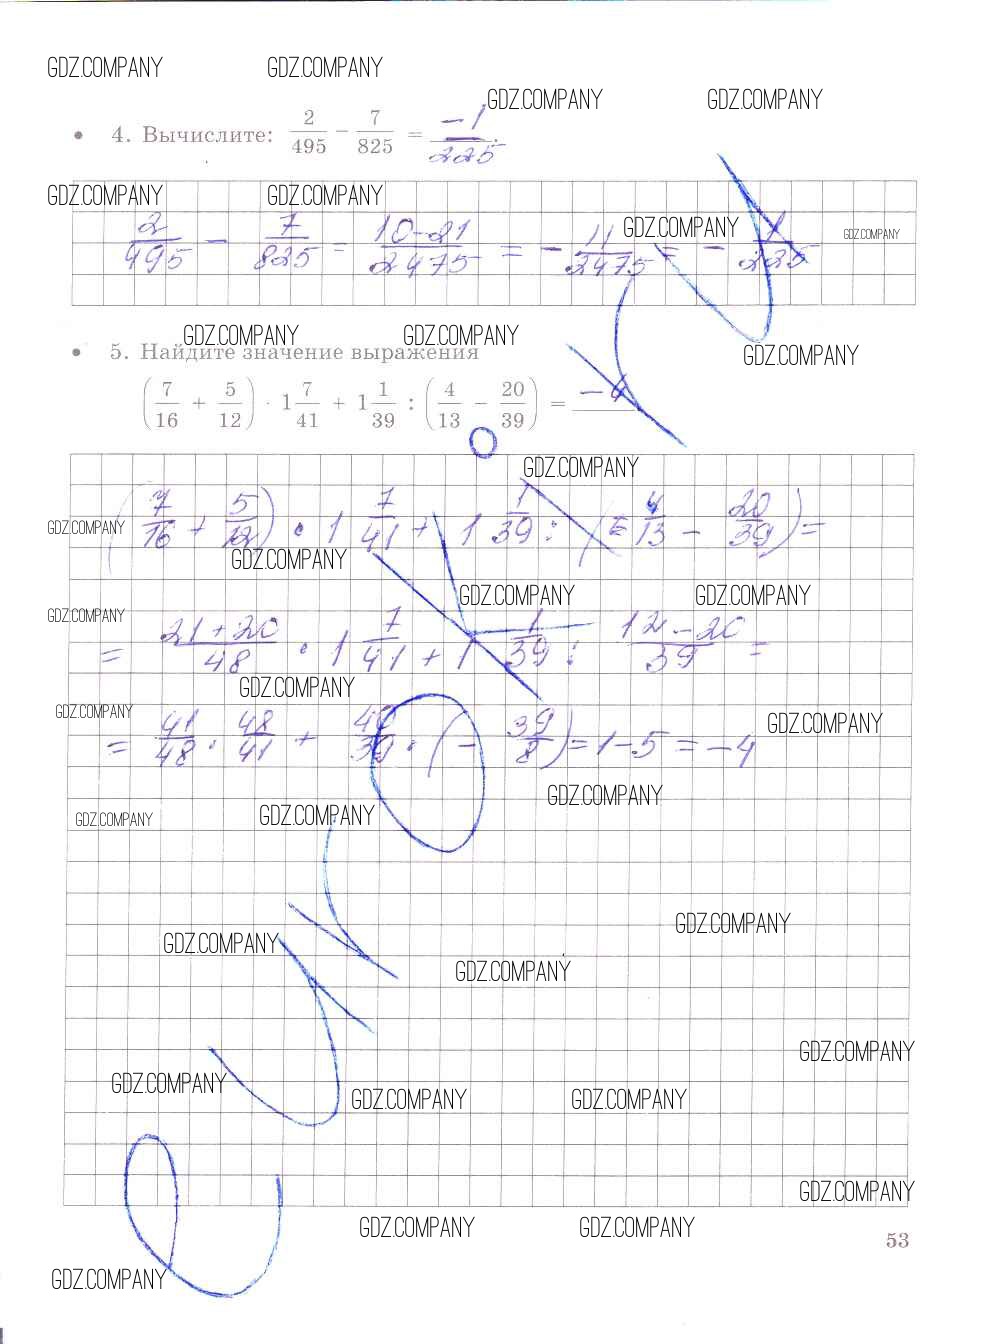 GDZ.COMPANY GDZ.COMPANY
GDZ.COMPANY GDZ.COMPANY
• 4. Вычислите: 2/495 − 7/825 = −1/225.
GDZ.COMPANY GDZ.COMPANY GDZ.COMPANY GDZ.COMPANY
2/495 − 7/825 = 10−21/2475 = − 11/2475 = − 1/225
GDZ.COMPANY GDZ.COMPANY GDZ.COMPANY
• 5. Найдите значение выражения
(7/16 + 5/12) · 1 7/41 + 1 1/39 : (4/13 − 20/39) = −4
GDZ.COMPANY
(7/16 + 5/12) · 1 7/41 + 1 1/39 : (4/13 − 20/39) =
GDZ.COMPANY GDZ.COMPANY
GDZ.COMPANY GDZ.COMPANY
GDZ.COMPANY
= 21+20/48 · 1 7/41 + 1 1/39 : 12−20/39 =
GDZ.COMPANY
GDZ.COMPANY GDZ.COMPANY
= 41/48 · 48/41 + 40/39 · (− 39/8) = 1−5 = −4
GDZ.COMPANY
GDZ.COMPANY GDZ.COMPANY
GDZ.COMPANY
GDZ.COMPANY GDZ.COMPANY
GDZ.COMPANY
GDZ.COMPANY GDZ.COMPANY GDZ.COMPANY
GDZ.COMPANY
GDZ.COMPANY GDZ.COMPANY
53
GDZ.COMPANY